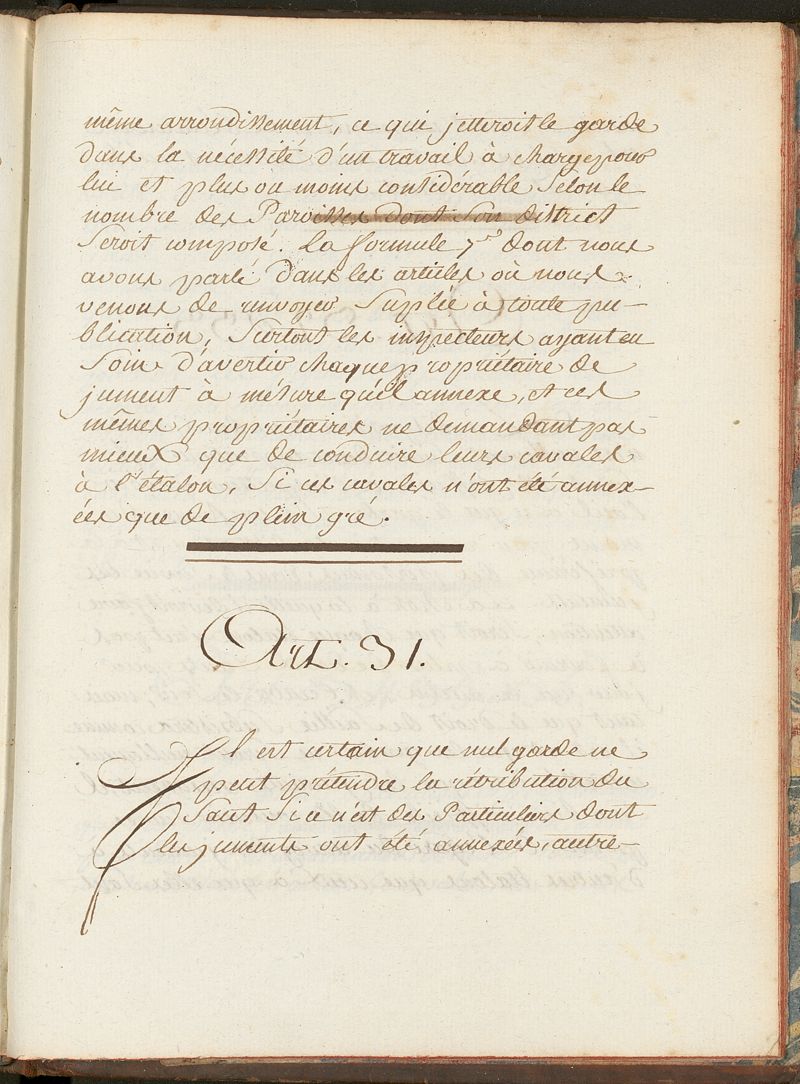 même arrondissement, ce qui jetteroit le garde
dans la nécéssité d'un travail à charge pour
lui et plus ou moins considérable sélon le
nombre des Paroisses dont son district
seroit composé. La formule 7.re dont nous
avons parlé dans les articles où nous
venons de renvoyer suplée à toute pu-
blication, surtout les inspecteurs ayant eu
soin d'avertir chaque propriétaire de
jument à mésure qu'il annexe, et ces
mêmes propriétaires ne demandant pas
mieux que de conduire leurs cavales
à l'étalon, si ces cavales n'ont été annex-
ées que de plein gré.
Art. 31.
Il est certain que nul garde ne
peut prétendre la rétribution du
saut si ce n'est des Particuliers dont
les juments ont été annexées, autre-